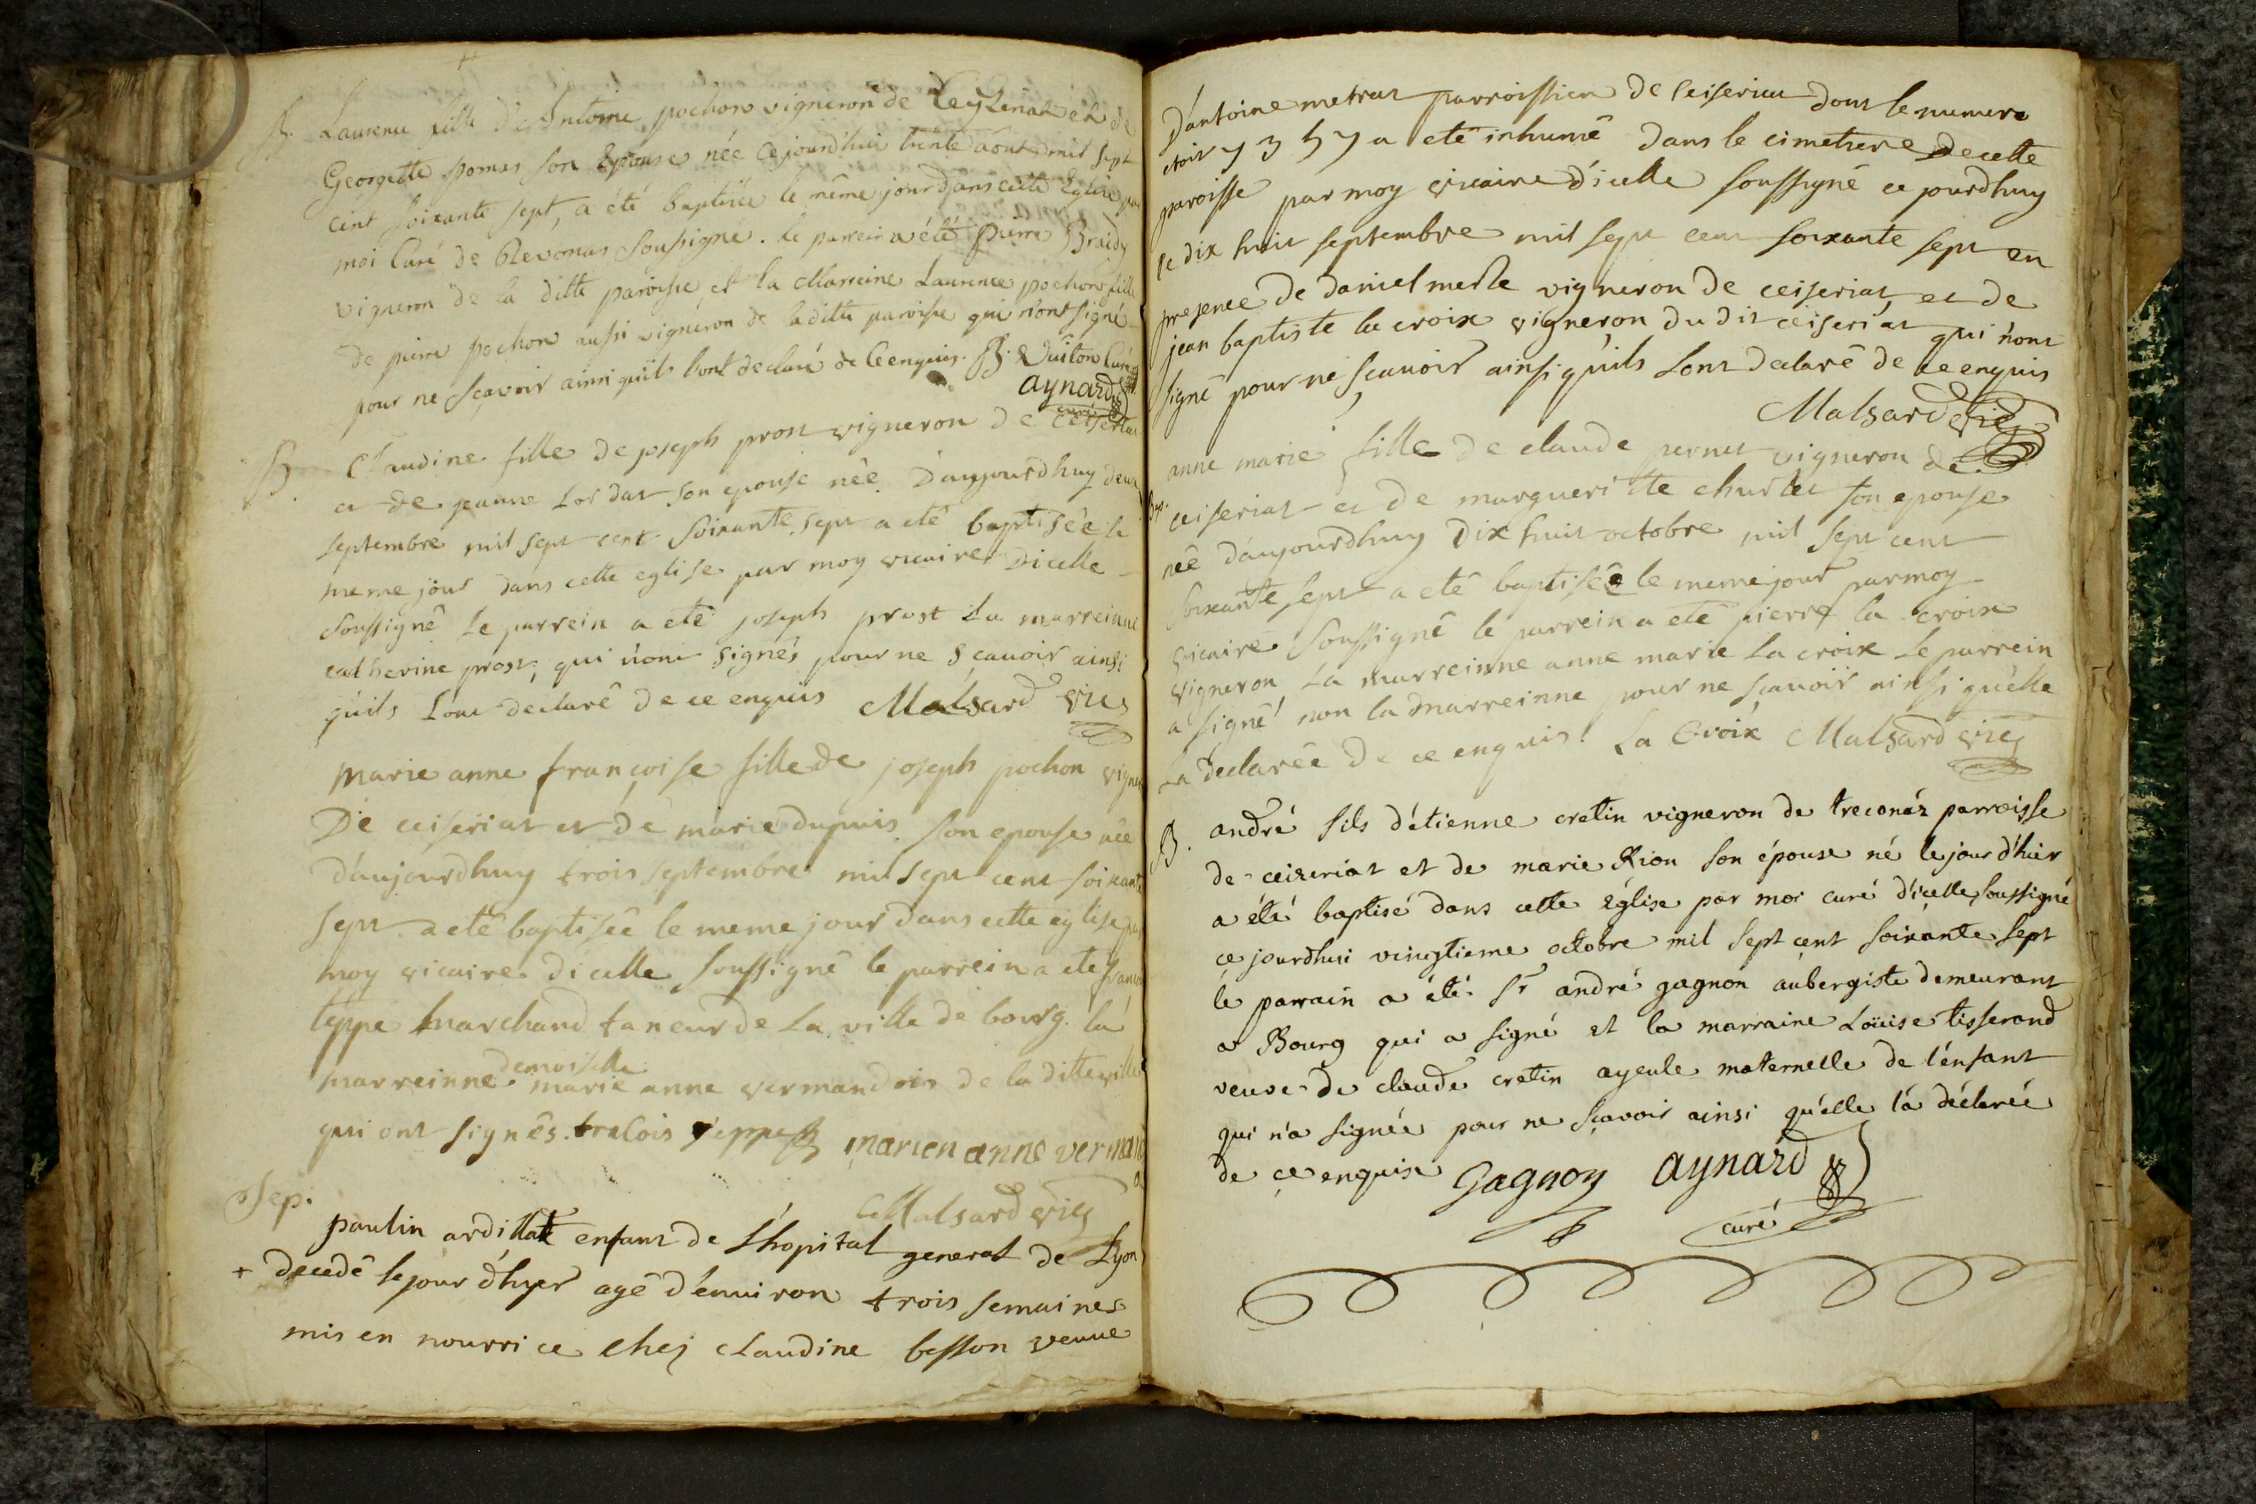 B. Laurence fille d'Antoine pochon vigneron de Ceyzeriat et de
Georgette pomas son Epouse née Cejourd'hui trente août mil sept
cent soixante sept, a été baptisée le même jour dans cette Eglise par
moi Curé de Revonas soussigné. le parrein a été pierre Braidy
vigneron de la ditte paroisse et la Marreine Laurence pochon fille
de pierre pochon aussi vigneron de la ditte paroisse qui n'ont signé
pour ne sçavoir ainsi qu'ils l'ont declaré de ce enquis. Curé
aynard
curé
B. Claudine fille de joseph prost vigneron de ceiseriat
et de jeanne son epouse née d'aujourdhuy deux
septembre mil sept cent soixante sept a eté baptisée le
meme jour dans cette eglise par moy vicaire d'icelle
soussigné le parrein a eté joseph prost La marreinne
catherine prost, qui n'ont signés pour ne sçavoir ainsi
qu'ils L'ont declaré de ce enquis Malsard vic
Marie anne françoise fille de joseph pochon vigner
De ceiseriat et de marie dupuis son epouse née
d'aujourdhuy trois septembre mil sept cent soixante
sept a eté baptisée le meme jour dans cette eglise par
moy vicaire d'icelle soussigné le parrein a ete
teppe marchand taneur de La ville de bourg. la
demoiselle
marreinne marie anne vermandois de la ditte ville
qui ont signés. teppe marien anne verman
Malsard vic
Sep.
paulin ardillat enfant de L'hopital general de Lyon
+ decedé le jour d'hyer agé d'environ trois semaines
mis en nourrice chez claudine besson veuve
d'antoine metrat parroissien de Ceiseriat dont le numero
etoit 7357 a eté inhumé dans le cimetiere de cette
paroisse par moy vicaire d'icelle soussigné ce jourdhuy
le dix huit septembre mil sept cent soixante sept en
presence de daniel merle vigneron de ceiseriat et de
jean baptiste la croix vigneron du dit ceiseriat qui n'ont
signé pour ne sçavoir ainsi qu'ils Lont declaré de ce enquis
Malsard vic
anne marie fille de claude pernet vigneron de
Bap. ceiseriat et de margueritte charlet son epouse
née d'aujourdhuy Dix huit octobre mil sept cent
soixante sept a eté baptisée le meme jour par moy
vicaire soussigné le parrein a eté pierre la croix
vigneron, La marreinne anne marie La croix Le parrein
a signé non la marreinne pour ne scavoir ainsi quelle
La declarée de ce enquis. La Croix Malsard vic
B. andré fils d'étienne cretin vigneron de treconaz parroisse
de ceizeriat et de marie Rion son épouse né le jour d'hier
a été baptisé dans cette Église par moi curé d'icelle soussigné
ce jourdhui vingtieme octobre mil sept cent soixante sept
le parrain a été Sr andré gagnon aubergiste demeurant
a Bourg qui a signé et la marraine Loüise tisserand
veuve de claude cretin ayeule maternelle de l'enfant
qui n'a signée pour ne sçavoir ainsi qu'elle l'a déclarée
de ce enquise Gagnon aynard
curé